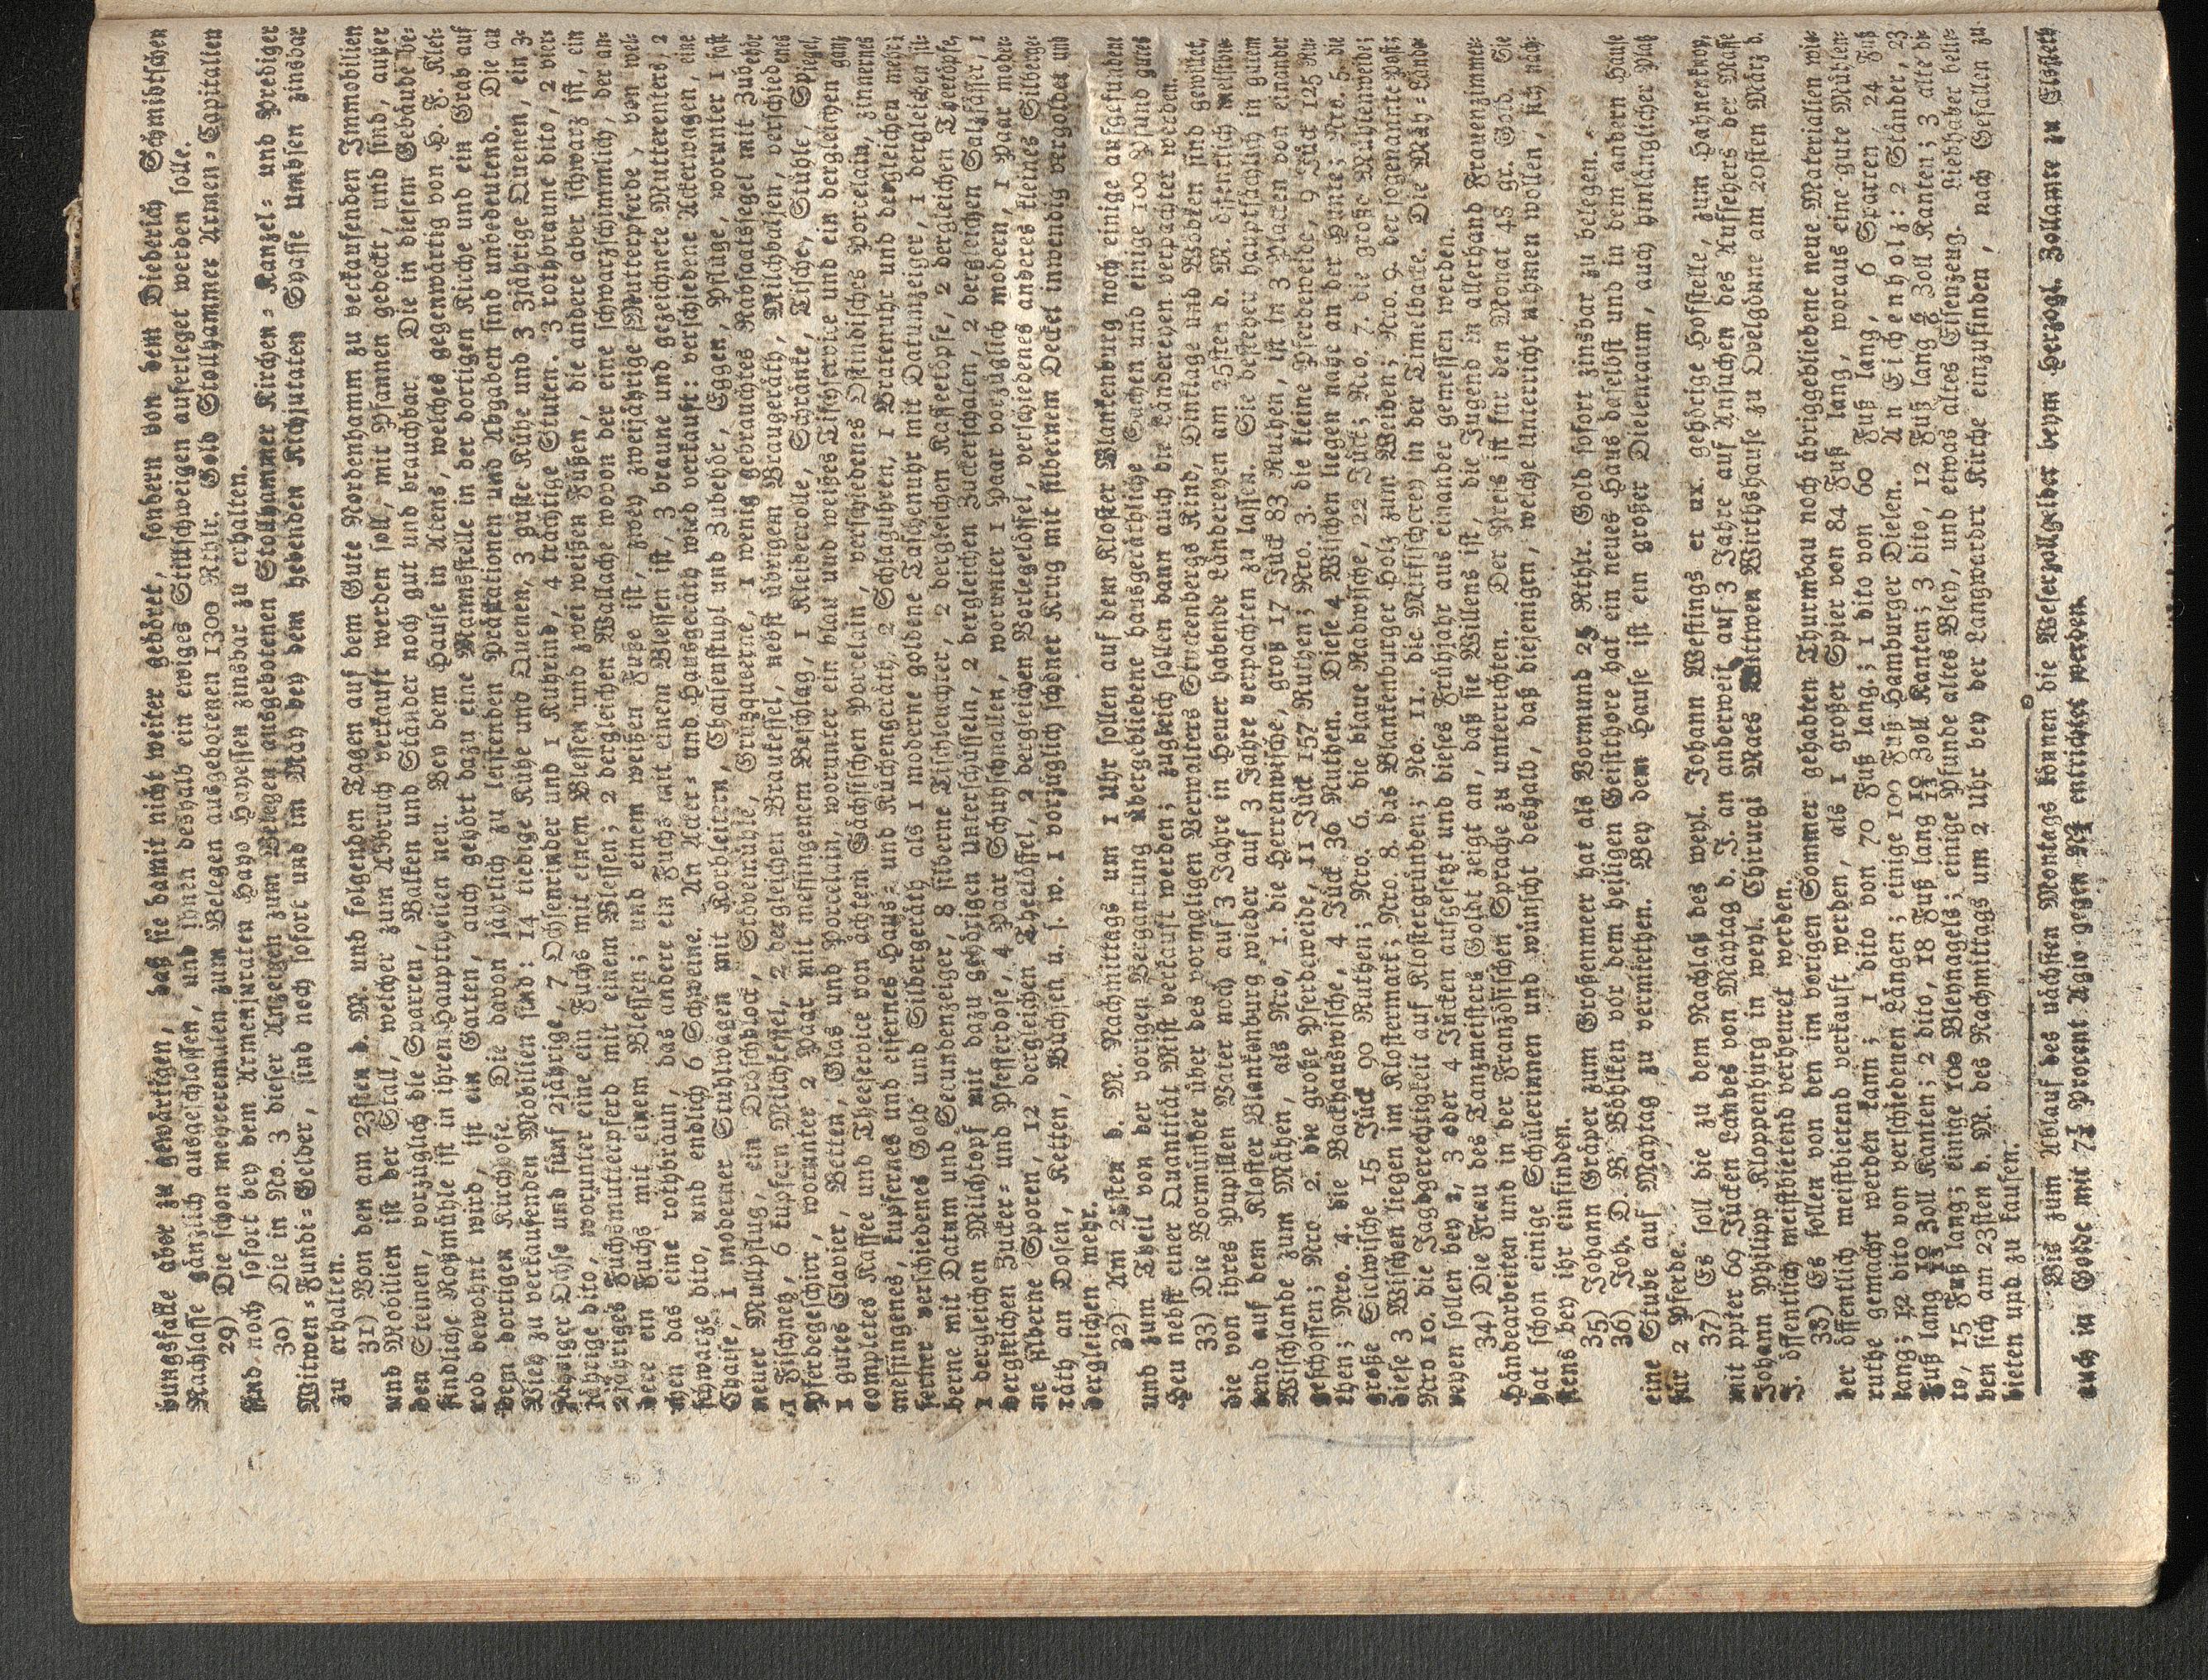 bungsfalle aber zu gewärtigen, daß sie damit nicht weiter gehöret, sondern von dem Diederich Schmidtschen
Nachlasse gänzlich ausgeschlossen, und ihnen deshalb ein ewiges Stillschweigen auferleget werden solle.
29) Die schon mehreremalen zum Belegen ausgebotenen 1300 Rthlr. Gold Stollhammer Armen-Capitalien
sind noch sofort bey dem Armenjuraten Hayo Hayessen zinsbar zu erhalten.
30) Die in No. 3 dieser Anzeigen zum Belegen ausgebotenen Stollhammer Kirchen- Kanzel- und Prediger
Witwen-Fundi-Gelder, sind noch sofort und im May bey dem hebenden Kirchjuraten Ohasse Umbsen zinsbar
zu erhalten.
31) Von den am 23sten d. M. und folgenden Tagen auf dem Gute Nordenhamm zu verkaufenden Immobilien
und Mobilien ist der Stall, welcher zum Abbruch verkauft werden soll, mit Pfannen gedeckt, und sind, außer
den Steinen, vorzüglich die Sparren, Balken und Ständer noch gut und brauchbar. Die in diesem Gebäude be-
findliche Roßmühle ist in ihren Haupttheilen neu. Bey dem Hause in Atens, welches gegenwärtig von H. F. Klet-
rod bewohnt wird, ist ein Garten, auch gehört dazu eine Mannsstelle in der dortigen Kirche und ein Grab auf
dem dortigen Kirchhofe. Die davon jährlich zu leistenden Prästationen und Abgaben sind unbedeutend. Die an
Vieh zu verkaufenden Mobilien sind: 14 tiedige Kühe und Quenen, 3 güste Kühe und 3 3jährige Quenen, ein 3-
jähriger Ochse und fünf 2jährige, 7 Ochsenrinder und 1 Kuhrind, 4 trächtige Stuten. 3 rothbraune dito, 2 vier-
jährige dito, worunter eine ein Fuchs mit einem Blessen und zwei weißen Füßen, die andere aber schwarz ist, ein
2jähriges Fuchsmutterpferd mit einem Blessen; 2 dergleichen Wallache wovon der eine schwarzschimmlich, der an-
dere ein Fuchs mit einem Blessen; und einem weißen Fuße ist, zwey zweijährige Mutterpferde, von wel-
chen das eine rothbraun, das andere ein Fuchs mit einem Blessen ist, 3 braune und gezeichnete Mutterenters, 2
schwarze dito, und endlich 6 Schweine. An Acker- und Hausgeräth wird verkauft: verschiedene Ackerwagen, eine
Chaise, 1 moderner Stuhlwagen mit Korbleitern, Chaisenstuhl und Zubehör, Eggen, Pflüge, worunter 1 fast
neuer Mullpflug, ein Dreschblock, Stövemühle, Grützquerne, 1 wenig gebrauchtes Rabsaatsegel mit Zubehör
1 Fischnetz, 6 kupfern Milchkessel, 2 dergleichen Braukessel, nebst übrigem Braugeräth, Milchbaljen, verschiedenes
Pferdegeschirr, worunter 2 Paar mit messingenem Beschlag, 1 Kleiderrolle, Schränke, Tische, Stühle, Spiegel,
1 gutes Clavier, Betten, Glas und Porcelain, worunter ein blau und weißes Tischservice und ein dergleichen ganz
completes Kaffee und Theeservice von ächtem Sächsischen Porcelain, verschiedenes Ostindisches Porcelain, zinnernes
messingenes, kupfernes und eisernes Haus- und Küchengeräth, 2 Schlaguhren, 1 Bratenuhr und dergleichen mehr;
ferner verschiedenes Gold und Silbergeräth als 1 moderne goldene Taschenuhr mit Datumzeiger, 1 dergleichen sil-
berne mit Datum und Secundenzeiger, 8 silberne Tischleuchter, 2 dergleichen Kaffeetöpfe, 2 dergleichen Theetöpfe,
1 dergleichen Milchtopf mit dazu gehörigen Unterschüsseln, 2 dergleichen Zuckerschalen, 2 dergleichen Salzfässer, 1
dergleichen Zucker- und Pfefferdose, 4 Paar Schuhschnallen, worunter 1 Paar vorzüglich modern, 1 Paar moder-
ne silberne Sporen, 12 dergleichen Theelöffel, 2 dergleichen Vorlegelöffel, verschiedenes anderes kleines Silberge-
räth an Dosen, Ketten, Büchsen u. s. w. 1 vorzüglich schöner Krug mit silbernem Deckel inwendig vergoldet und
dergleichen mehr.
32) Am 25sten d. M. Nachmittags um 1 Uhr sollen auf dem Kloster Blankenburg noch einige aufgefundene
und zum Theil von der vorigen Vergantung übergebliebene hausgeräthliche Sachen und einige 100 Pfund gutes
Heu nebst einer Quantität Mist verkauft werden; zugleich sollen dann auch die Ländereyen verpachtet werden.
33) Die Vormünder über des vormaligen Verwalters Stutenbergs Kind, Dinklage und Röbken sind gewillet,
die von ihres Pupillen Vater noch auf 3 Jahre in Heuer habende Ländereyen am 25sten d. M. öffentlich meistbie-
tend auf dem Kloster Blankenburg wieder auf 3 Jahre verpachten zu lassen. Sie bestehen hauptsächlich in gutem
Wischlande zum Mähen, als Nro. 1. die Herrenwische, groß 17 Jück 83 Ruthen, ist in 3 Placken von einander
geschossen; Nro. 2. die große Pferdeweide, 11 Jück 157 Ruthen; Nro. 3. die kleine Pferdeweide, 9 Jück 125 Ru-
then; Nro. 4. die Backhauswische, 4 Jück 36 Ruthen. Diese 4 Wischen liegen nahe an der Hunte; Nro. 5. die
große Sielwische 15 Jück 90 Ruthen; Nro. 6. die blaue Radwische, 22 Jück; Nro. 7. die große Mühlenweide;
diese 3 Wischen liegen im Klostermark; Nro. 8. das Blankenburger Holz zum Weiden; Nro. 9. der sogenannte Post;
Nro 10. die Jagdgerechtigkeit auf Klostergründen; No. 11. die Mitfischerey in der Timelbäke. Die Mäh-Lände-
reyen sollen bey 2, 3 oder 4 Jücken aufgesetzt und dieses Frühjahr aus einander gemessen werden.
34) Die Frau des Tanzmeisters Goldt zeigt an, daß sie Willens ist, die Jugend in allerhand Frauenzimmer-
Händearbeiten und in der Französischen Sprache zu unterrichten. Der Preis ist für den Monat 48 gr. Gold. Sie
hat schon einige Schülerinnen und wünscht deshalb, daß diejenigen, welche Unterricht nehmen wollen, sich näch-
stens bey ihr einfinden.
35) Johann Gräper zum Großenmeer hat als Vormund 25 Rthlr. Gold sofort zinsbar zu belegen.
36) Joh. D. B. Böhlken vor dem heiligen Geistthore hat ein neues Haus daselbst und in dem andern Hause
eine Stube auf Maytag zu vermiethen. Bey dem Hause ist ein großer Dielenraum, auch hinlänglicher Platz
für 2 Pferde.
37) Es soll die zu dem Nachlaß des weyl. Johann Westings et ux. gehörige Hofstelle, zum Hahnenknop,
mit ppter 69 Jücken Landes von Maytag d. J. an anderweit auf 3 Jahre auf Ansuchen des Aufsehers der Masse
Johann Philipp Kloppenburg in weyl. Chirurgi Maes Wittwen Wirthshause zu Ovelgönne am 20sten März d.
J. öffentlich meistbietend verheuret werden.
38) Es sollen von den im vorigen Sommer gehabten Thurmbau noch übriggebliebene neue Materialien wie-
der öffentlich meistbietend verkauft werden, als 1 großer Spier von 84 Fuß lang, woraus eine gute Mühlen-
ruthe gemacht werden kann; 1 dito von 70 Fuß lang; 1 dito von 60 Fuß lang, 6 Sparren, 24 Fuß
lang; 12 dito von verschiedenen Längen; einige 100 Fuß Hamburger Dielen. An Eichenholz: 2 Ständer, 23
Fuß lang 12/13 Zoll Kanten; 2 dito, 18 Fuß lang 12/13 Zoll Kanten; 3 dito, 12 Fuß lang 6/8 Zoll Kanten; 3 alte di-
to, 15 Fuß lang; einige 100 Bleynagels; einige Pfunde altes Bley, und etwas altes Eisenzeug. Liebhaber belie-
ben sich am 23sten d. M. des Nachmittags um 2 Uhr bey der Langwarder Kirche einzufinden, nach Gefallen zu
bieten und zu kaufen.
Bis zum Ablauf des nächsten Montags können die Weserzollgelder beym Herzogl. Zollamte zu Elsfleth
auch in Golde mit 7½ Procent Agio gegen N⅔ entrichtet werden.